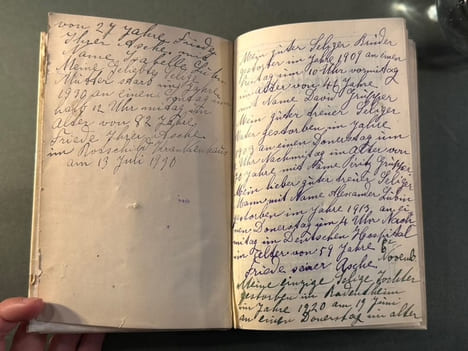 von 27 Jahre, Friede
Ihrer Asche mit
Name Isabelle Lubin
Meine geliebte selige
Mutter starb im Jahre
1930 an einen Sontag um
halb 12 Uhr mitag im
Alter von 82 Jahre
Friede Ihrer Asche
im Rotschild Krankenhaus
am 13 Juli 1930
Mein guter Seliger Bruder
gestorben im Jahre 1909 an einen
um 10 Uhr vormitag
Alter von 42 Jahre
mit Name David
Mein guter treuer Seliger
Vater gestorben im Jahre
1909 an einen Donerstag um
Uhr Nachmitag im Alter von
Jahre mit Name Moritz
Mein lieber guter treuer Seliger
Mann mit Name Alexander Lubin
gestorben im Jahre 1913, an ei
nen Donerstag um 4 Uhr Nach
mitag im Deutschen Hospital
im Alter von 59 Jahre 6te
Novemb
Friede seiner Asche
Meine einzige Selige Tochter
gestorben in Rodensheim
im Jahre 1920 am 19 Juni
an einen Donerstag im alter